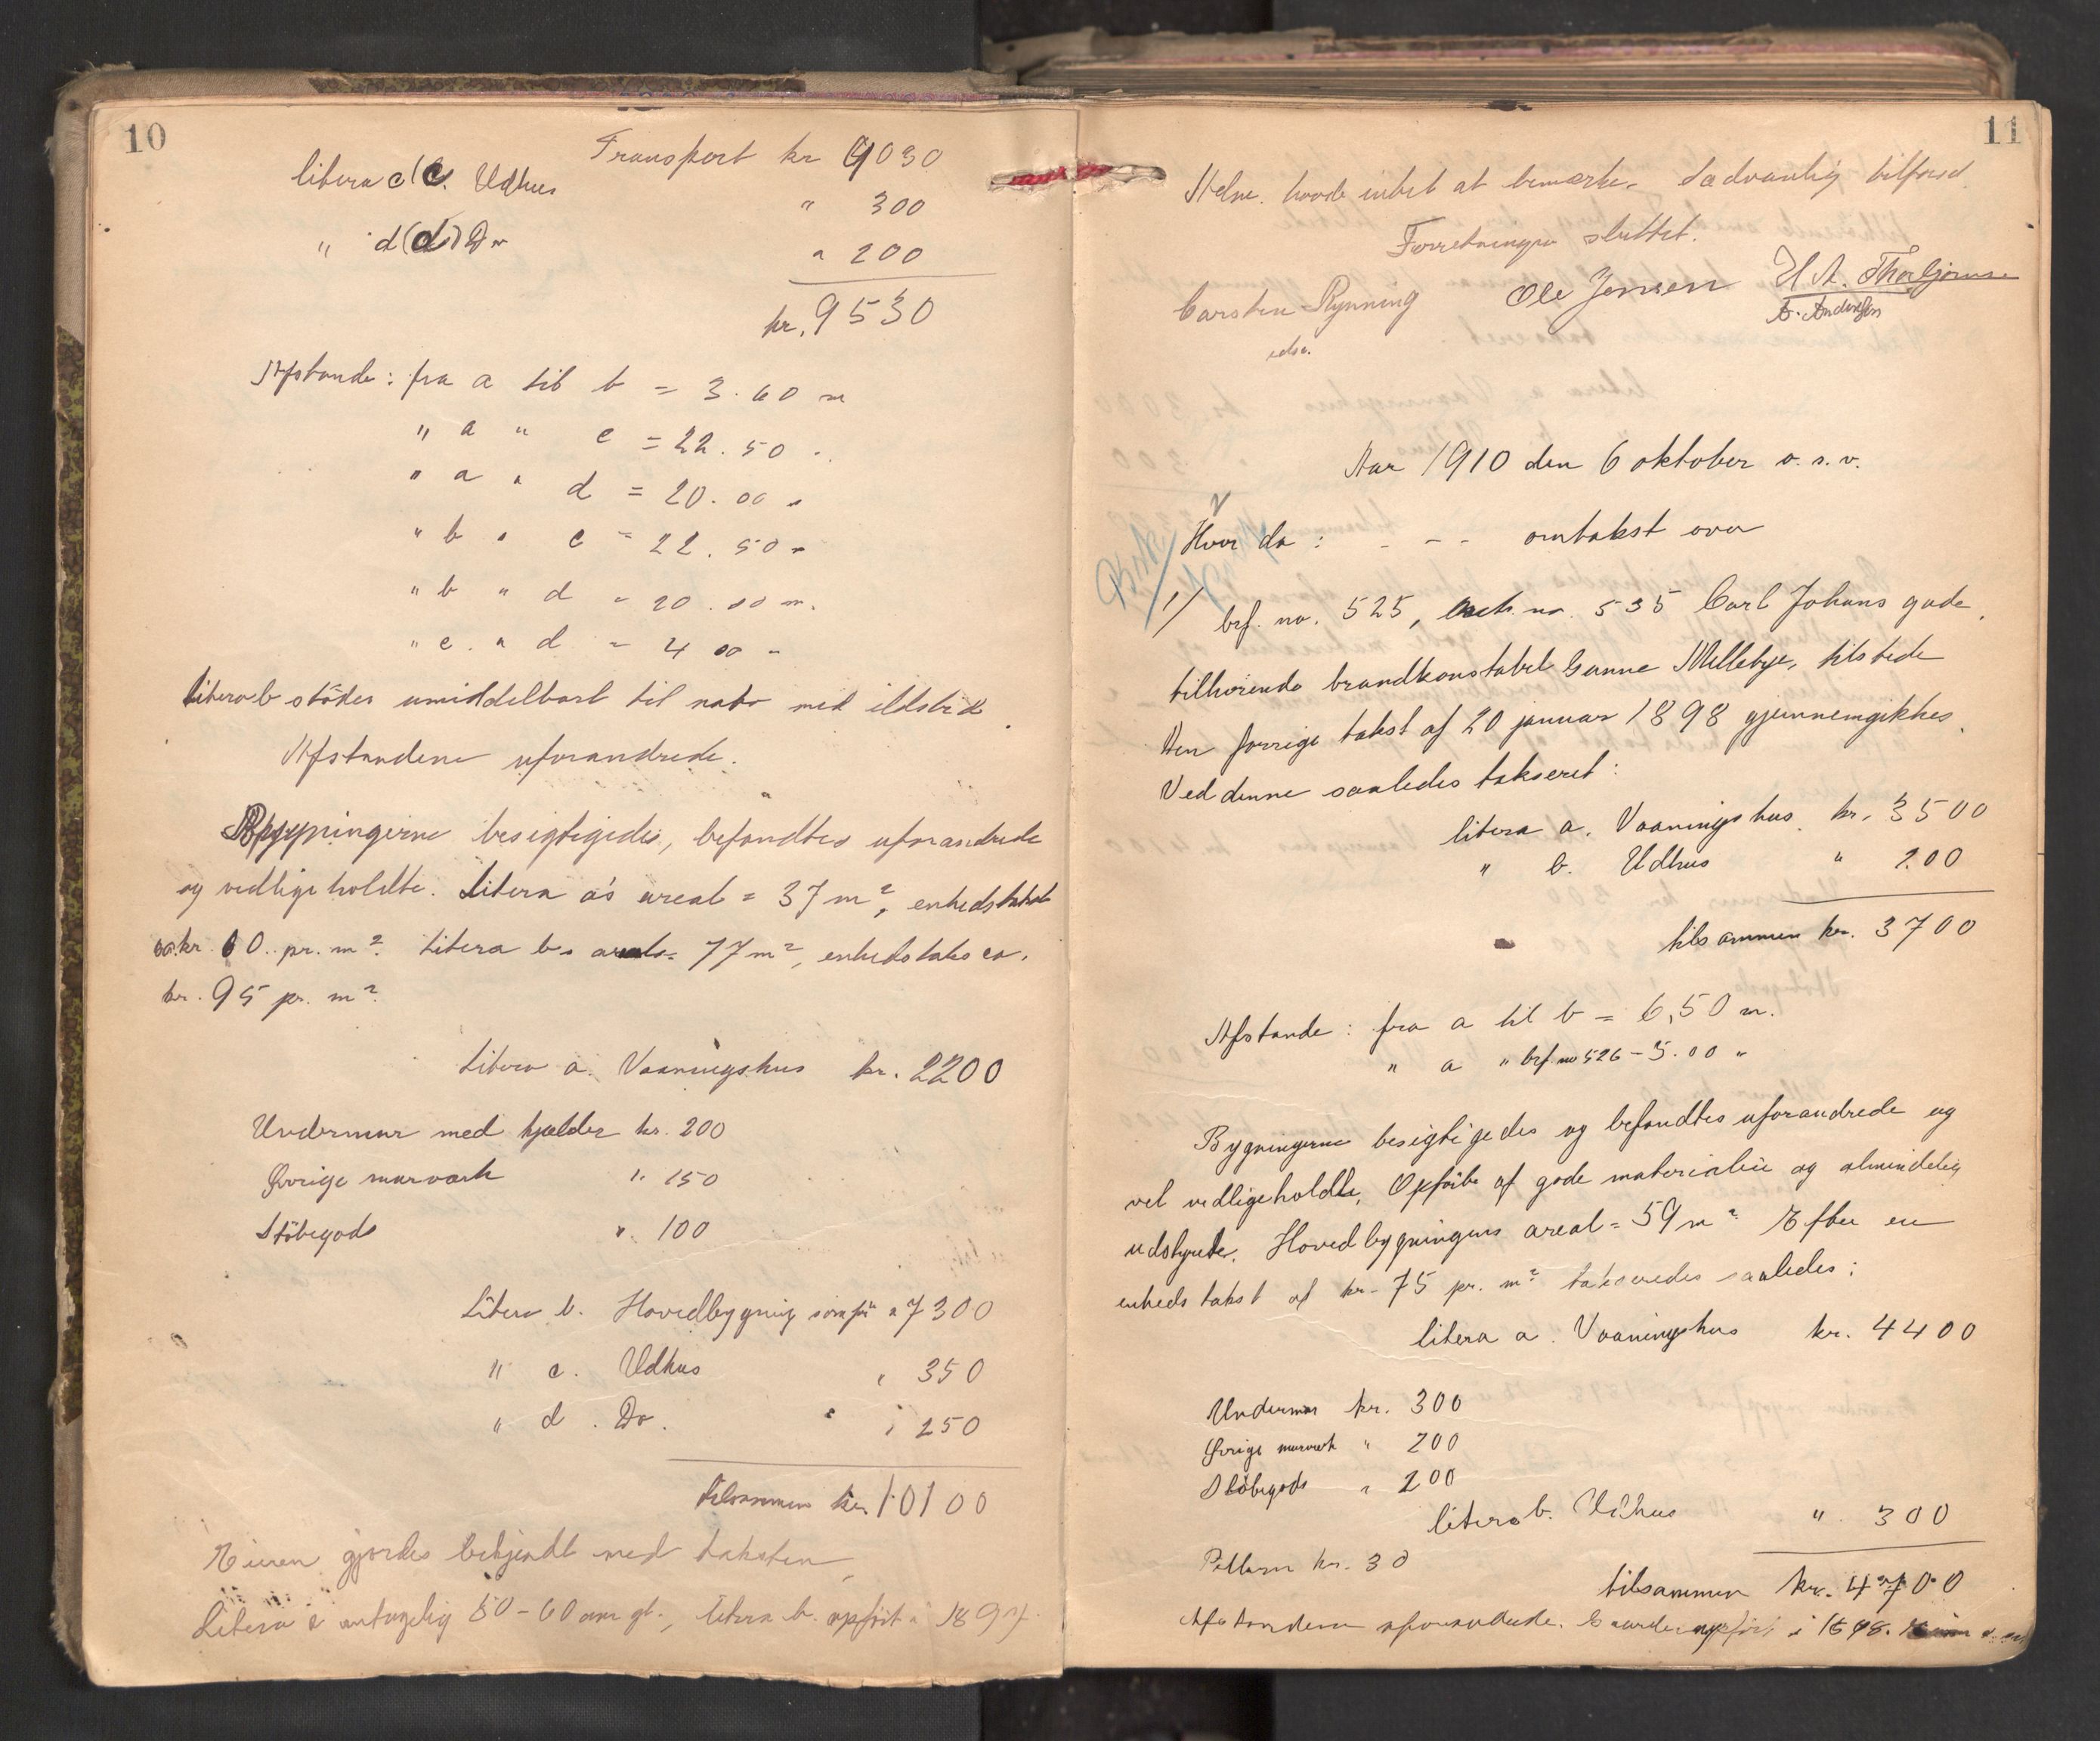 10
Transport kr 9030
litera c (c. Udhus " 300
" d (d) Do " 200
kr. 9530
Afstande: fra a til b = 3.60 m
" a " c = 22.50 "
" a " d = 20.00 "
" b " c = 22.50 "
" b " d = 20.00 m.
" c " d = 4 00 "
Litera b støder umiddelbart til nabo med ildsted.
Afstandene uforandrede.
Bygningerne besigtigedes, befandtes uforandrede
og vedligeholdte. Litera a's areal = 37 m², enhedstakst
ca. kr. 60. pr. m². Litera b's areal = 77 m², enhedstakst ca.
kr. 95 pr. m².
Litera a. Vaaningshus kr. 2200
Undermur med kjælder kr. 200
Øvrige murværk " 150
Støbegods " 100
Litera b. Hovedbygning som før " 7300
" c. Udhus " 350
" d. Do. " 250
tilsammen kr. 10100
Eieren gjordes bekjendt med taksten,
Litera a antagelig 50-60 aar gl., litera b. opført i 1897.
11
Han havde intet at bemerke. Sædvanlig tilførsel.
Forretningen sluttet.
Carsten Rynning Ole Jensen H A. Thorbjørnsen
edsv. A. Andersen
Aar 1910 den 6 oktober o. s. v.
Hvor da: - - - omtakst over
1/ brf. no. 525, mtr. no. 535 Carl Johans gade,
tilhørende brandkonstabel Gunne Mellebye, tilstede
Den forrige takst af 20 januar 1898 gjennemgikkes.
Ved denne saaledes takseret:
litera a. Vaaningshus kr. 3500
" b. Udhus " 200
tilsammen kr. 3700
Afstande: fra a til b = 6,50 m.
" a " brf. no 526 - 5.00 "
Bygningerne besigtigedes og befandtes uforandrede og
vel vedligeholdte. Opført af gode materialier og almindelig
udstyrede. Hovedbygningens areal = 59 m² Efter en
enhedstakst af kr. 75 pr. m² takseredes saaledes:
litera a. Vaaningshus kr. 4400
Undermur kr. 300
Øvrige murværk " 200
Støbegods " 200
litera b. Udhus " 300
Pillarer kr. 30
tilsammen kr. 4700
Afstandene uforandrede. Gaarden opført i 1898.